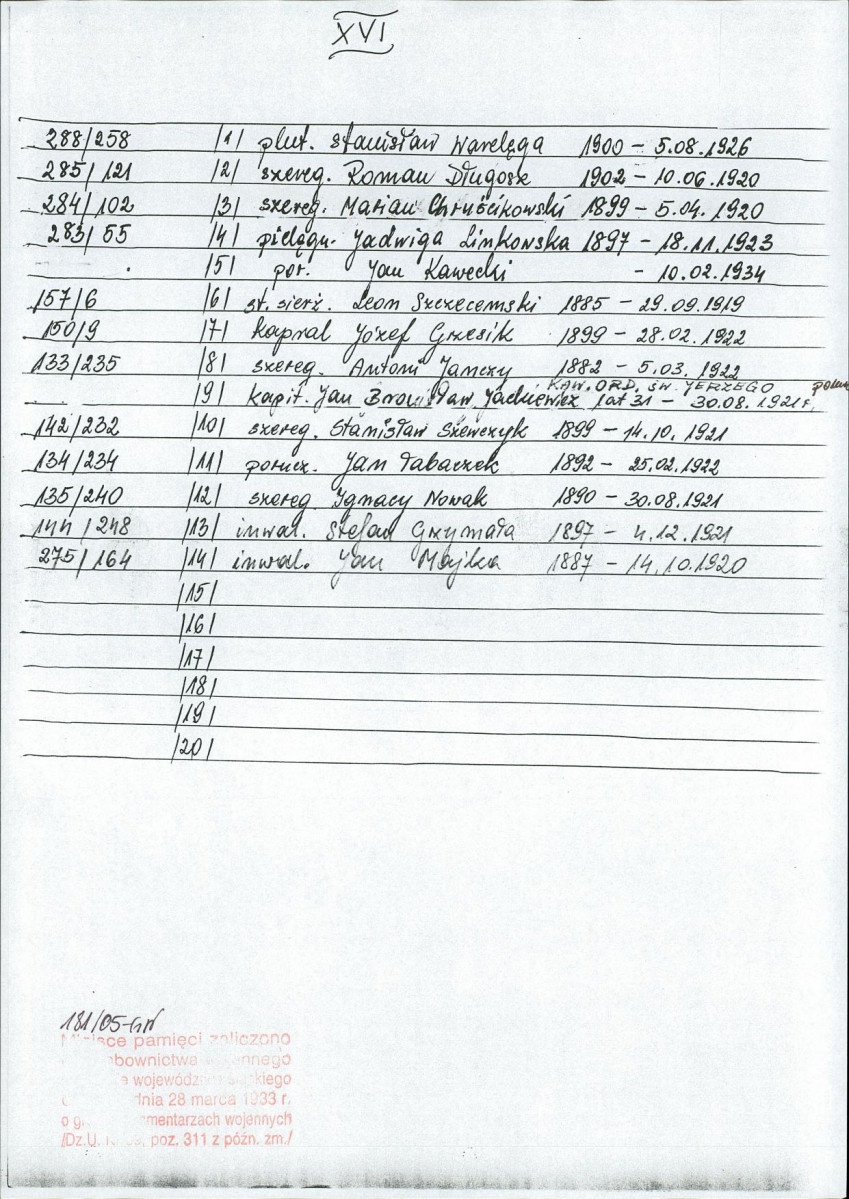 XVI
288/258 /1/ plut. Stanisław Warelęga 1900 – 5.08.1926
285/121 /2/ szereg. Roman Długosz 1902 – 10.06.1920
284/102 /3/ szereg. Marian Chruścikowski 1899 – 5.04.1920
283/55 /4/ pielęgn. Jadwiga Linkowska 1897 – 18.11.1923
/5/ por. Jan Kawecki – 10.02.1934
157/6 /6/ st. sierż. Leon Szczecemski 1885 – 29.09.1919
150/9 /7/ kapral Józef Grzesik 1899 – 28.02.1922
133/235 /8/ szereg. Antoni Janczy 1882 – 5.03.1922
KAW. ORD. ŚW. JERZEGO
/9/ kapit. Jan Bronisław Jackiewicz lat 31 – 30.08.1921 r.
142/232 /10/ szereg. Stanisław Szewczyk 1899 – 14.10.1921
134/234 /11/ porucz. Jan Tabaczek 1892 – 25.02.1922
135/240 /12/ szereg. Ignacy Nowak 1890 – 30.08.1921
144/248 /13/ inwal. Stefan Grzymała 1897 – 4.12.1921
275/164 /14/ inwal. Jan Majka 1887 – 14.10.1920
/15/
/16/
/17/
/18/
/19/
/20/
181/05-GW
pamięci zaliczono
dnia 28 marca 1933 r.
cmentarzach wojennych
/Dz.U. poz. 311 z późn. zm./